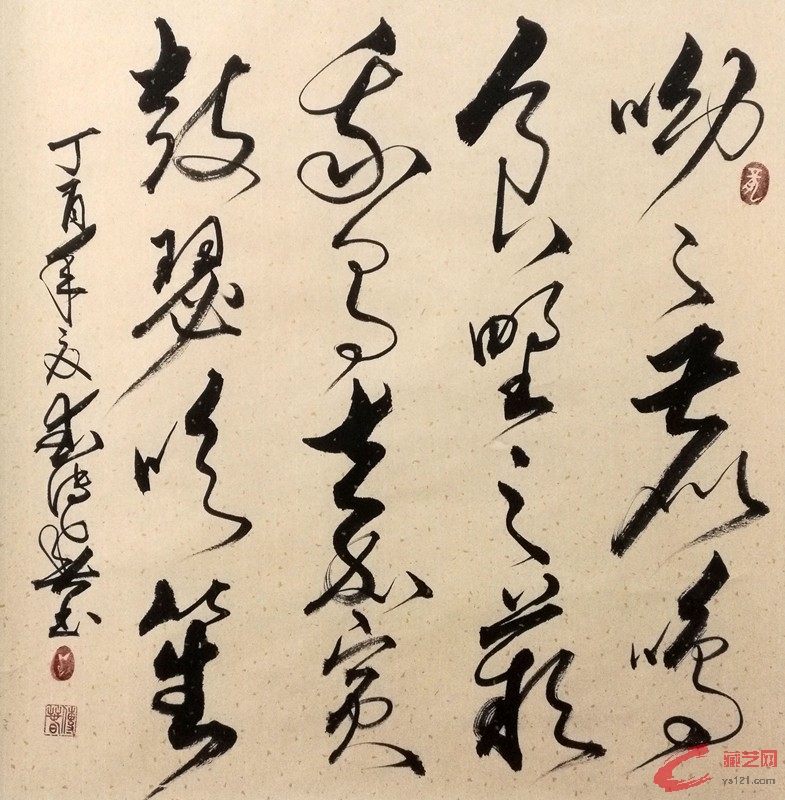 呦々鹿鳴
食野之蘋
我有嘉賓
鼓瑟吹笙
丁酉年夏書
藏艺网
ys121.com